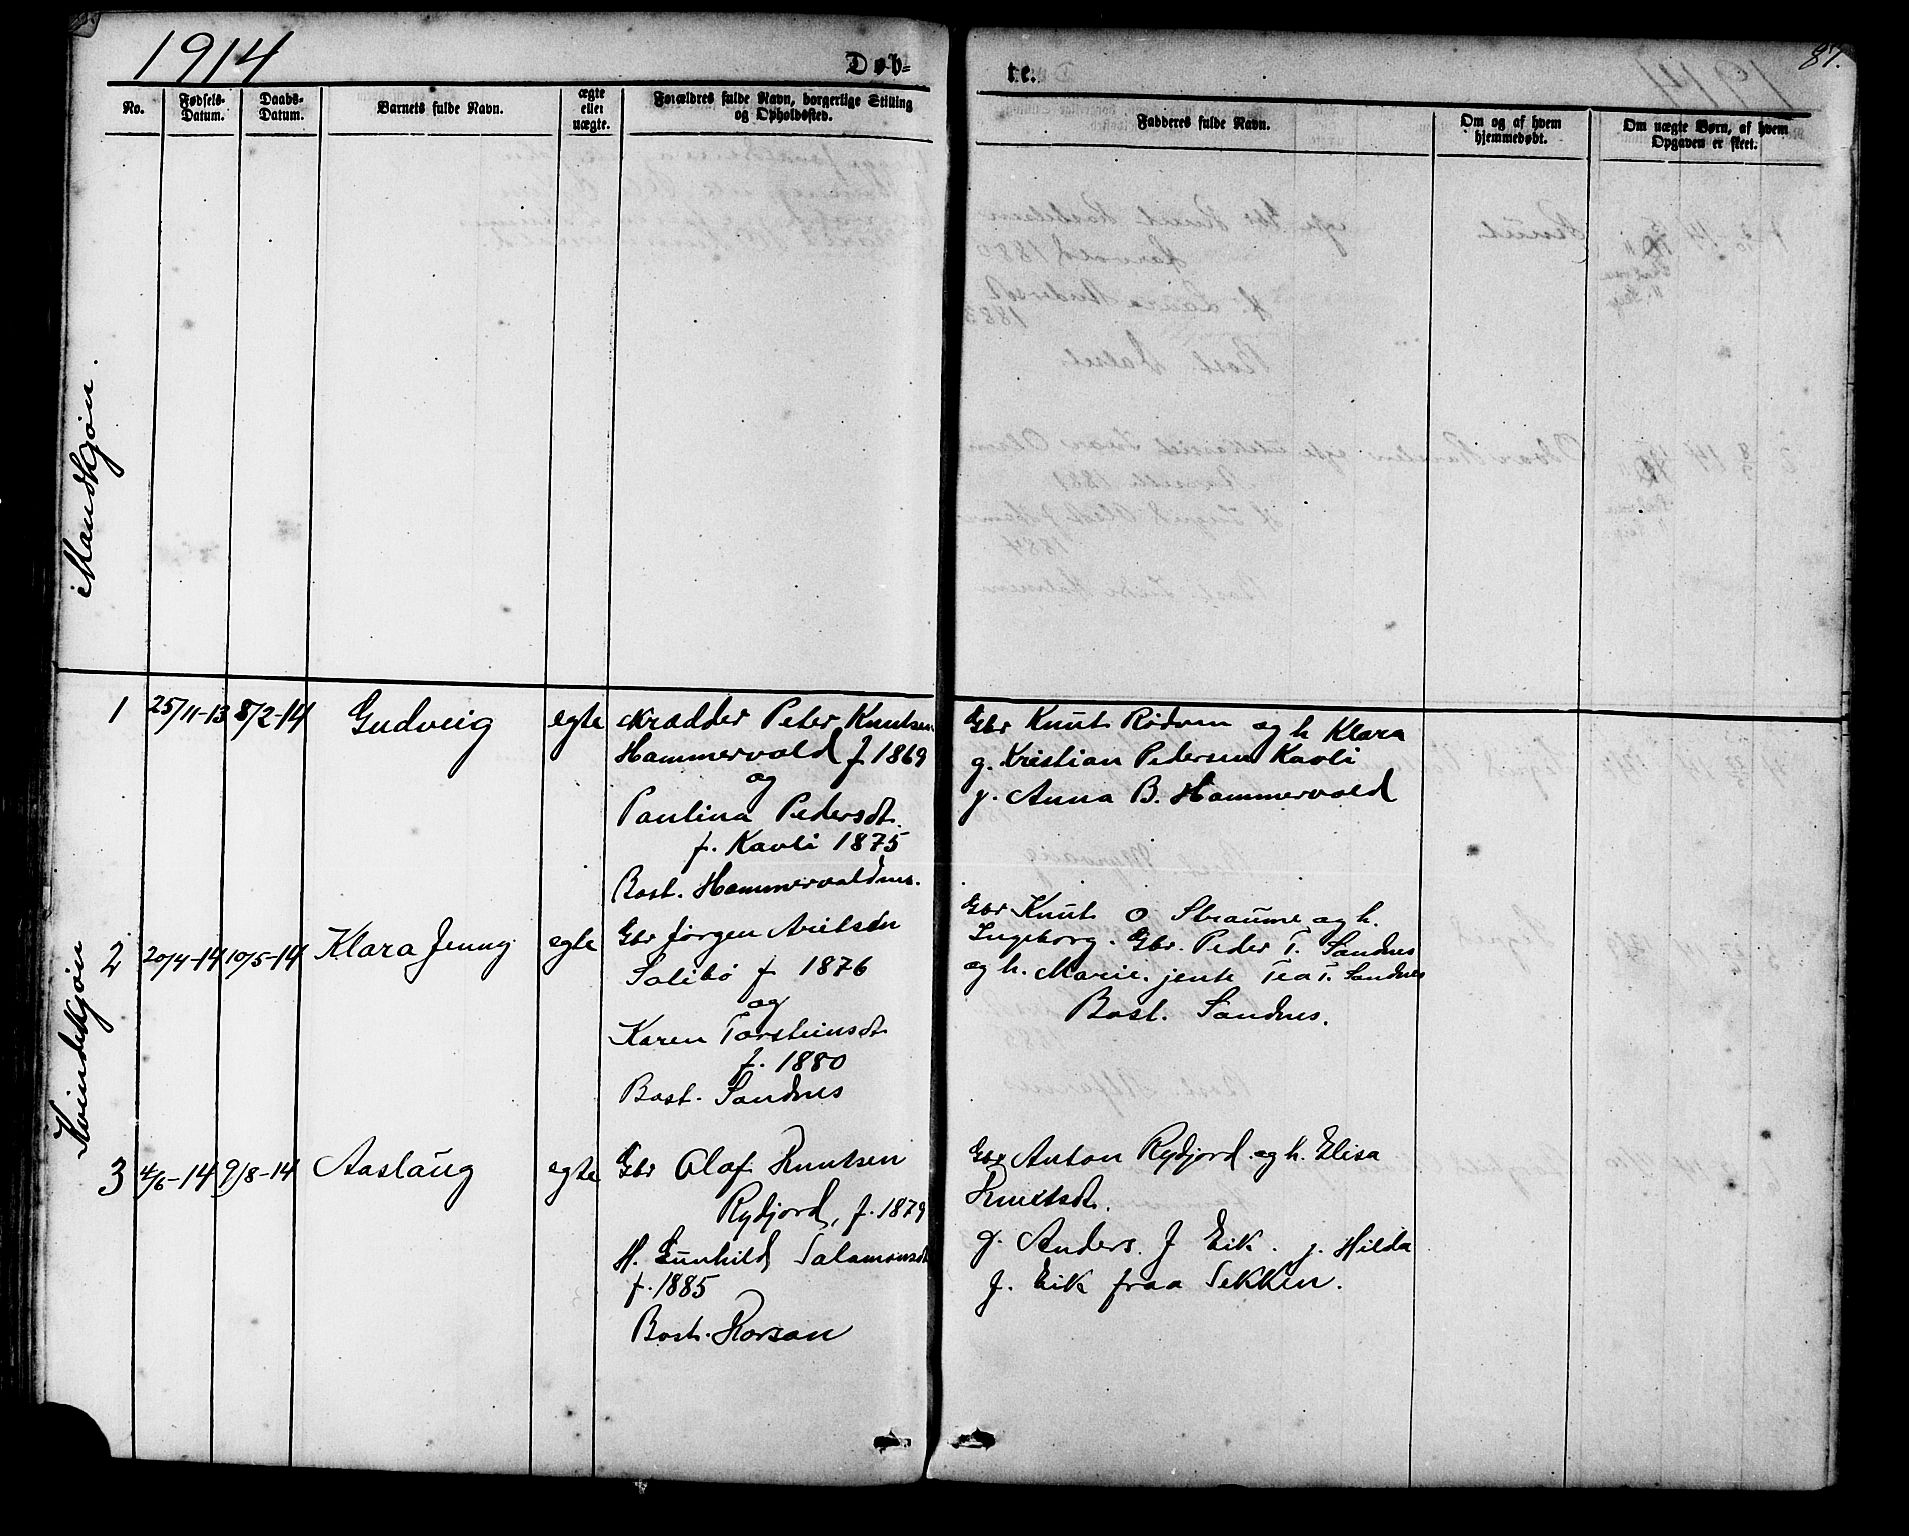 1914
Døb-
te.
87.
No.
Fødsels-
Datum.
Daabs-
Datum.
Barnets fulde Navn.
ægte
eller
uægte.
Forældres fulde Navn, borgerlige Stilling
og Opholdssted.
Faddernes fulde Navn.
Om og af hvem
hjemmedøbt.
Om uægte Børn, af hvem
Opgaven er skeet.
Mandkjøn.
Kvindekjøn
1
25/11-13
8/2-14
Gudveig
egte
Skrædder Peter Knutsen
Hammervold f 1869
og
Paulina Pedersdt.
f. Kavli 1875
Bost. Hammervoldnes.
Gbr Knut Rødven og h Klara
g. Kristian Pedersen Kavli
p. Anna B. Hammervold
2
20/4-14
10/5-14
Klara Jenny
egte
Gbr Jørgen
Solibø f 1876
og
Karen Torsteinsdt
f. 1880
Bost. Sandnes
Gbr Knut O Straume og h.
Ingeborg. Gbr. Peder T. Sandnes
og h. Marie. jente Tea T. Sandnes
Bost. Sandnes.
3
4/6-14
9/8-14
Aaslaug
egte
Gbr Olaf Knutsen
Rydjord, f. 1879
H. Gunhild Salamonsdt
f. 1885
Bost. Korsan
Gbr Anton Rydjord og h. Elisa
Knutsdt.
g. Anders J Eik. p. Hilda
J. Eik fraa Sekken.